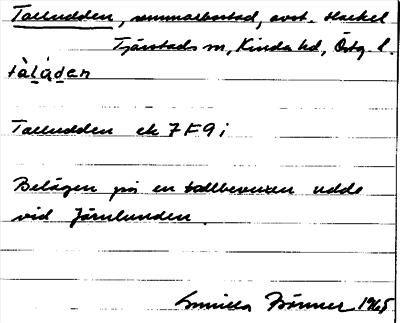 Talludden, sommarbostad, avst. Hackel
Tjärstads sn, Kinda hd, Östg. l.
tàlúden
Talludden ek 7F9i
Belägen på en tallbevuxen udde
vid Järnlunden.
Gunilla 1965